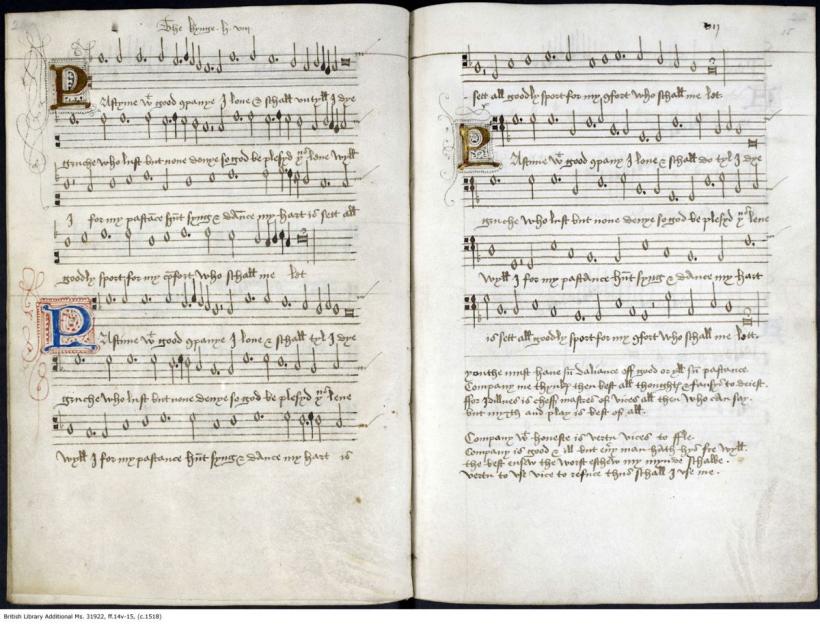 The kynge h viii
PAstyme wt good 9panye I loue & schall vntyll I dye
gruche who lust but none denye so god be plesyd yus leue wyll
I for my pastãce hũt syng & dãnce my hart is sett all
goodly sport for my cõfort who schall me let
PAstime wt good 9panye I loue & schall tyl I dye
gruche who lust but none denye so god be plesyd yus leue
wyll I for my pastance hũt syng & dance my hart is
sett all goodly sport for my 9fort who schall me let
PAstime wt good 9pany I loue & schall do tyl I dye
gruche who lust but none denye so god be plesyd yus leue
wyll I for my pastance hũt syng & dance my hart
is sett all goodly sport for my 9fort who schall me lett.
youthe must haue sũ daliance off good or yll sũ pastance.
Company me thynkς then best all thoughtς & fansys to deiest.
ffor Idillnes is cheff mastres of vices all then who can say.
but myrth and play is best of all.
Company wt honeste is vertu vices to ffle.
Company is good & ill but eũy man hath hys fre wyll.
the best ensew the worst eschew my mynde schalbe.
vertu to vse vice to refuce thus schall I vse me.
British Library Additional Ms. 31922, ff.14v-15, (c.1518)